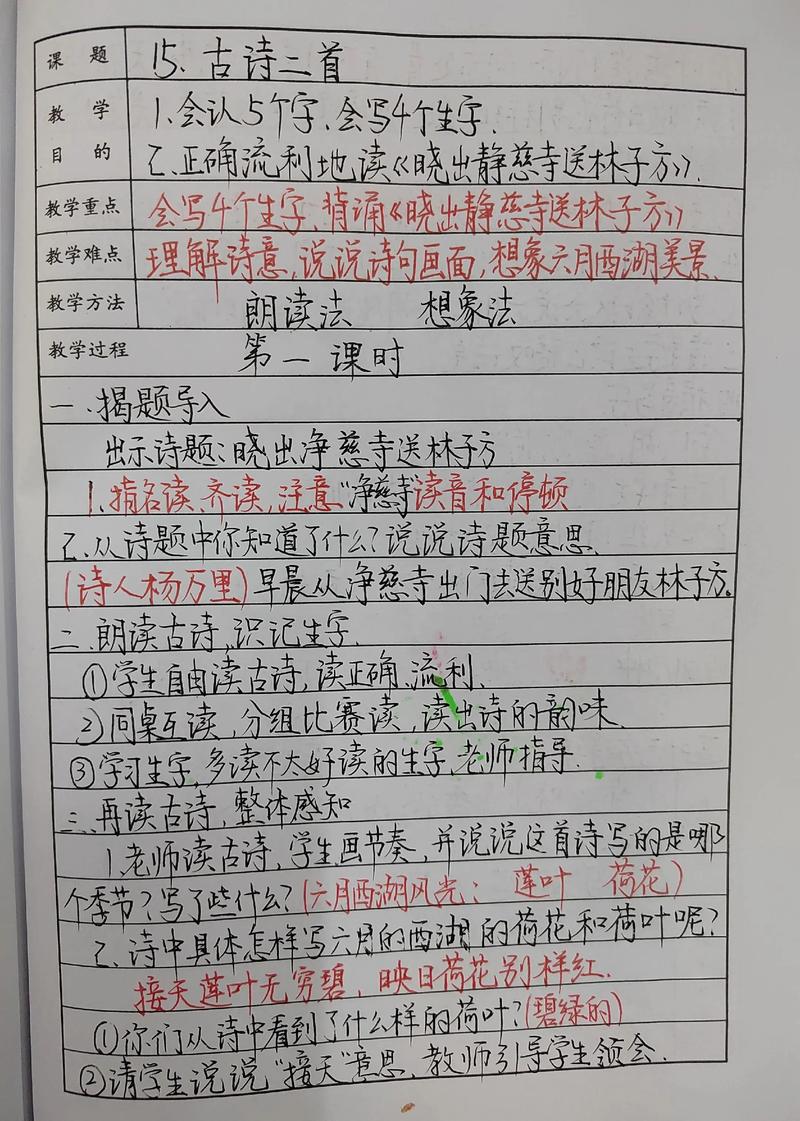 课题 15、古诗二首
教学目的 1、会认5个字、会写4个生字、
2、正确流利地读《晓出静慈寺送林子方》、
教学重点 会写4个生字、背诵《晓出静慈寺送林子方》
教学难点 理解诗意,说说诗句画面,想象六月西湖美景、
教学方法 朗读法 想象法
教学过程 第一课时
一、揭题导入
出示诗题:晓出净慈寺送林子方
1、指名读、齐读,注意“净慈寺”读音和停顿
2、从诗题中你知道了什么?说说诗题意思、
(诗人杨万里)早晨从净慈寺出门去送别好朋友林子方。
二、朗读古诗,识记生字、
①学生自由读古诗,读正确、流利、
②同桌互读,分组比赛读,读出诗的韵味、
③学习生字,多读不大好读的生字,老师指导、
三、再读古诗,整体感知
1、老师读古诗,学生画节奏,并说说这首诗写的是哪
个季节?写了些什么?(六月西湖风光: 莲叶 荷花)
2、诗中具体怎样写六月的西湖的荷花和荷叶呢?
接天莲叶无穷碧,映日荷花别样红、
①你们从诗中看到了什么样的荷叶?(碧绿的)
②请学生说说“接天”意思,教师引导学生领会、